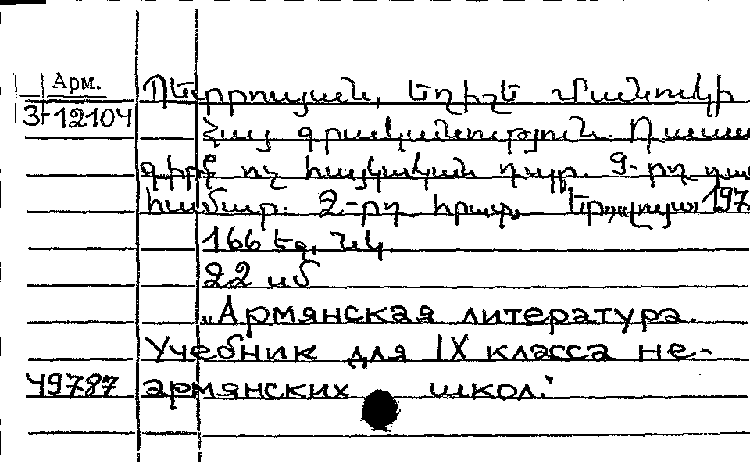 Арм.
3-12104
Պետրոսյան, Եղիշե Մանուկի
Հայ գրականություն. Դասա
գիրք ոչ հայկական դպր. 9-րդ դա
համար. 2-րդ հրատ. Երևան, 197
166 եջ, նկ.
22 սմ
„Армянская литература.
Учебник для IX класса не-
49787 армянских школ."